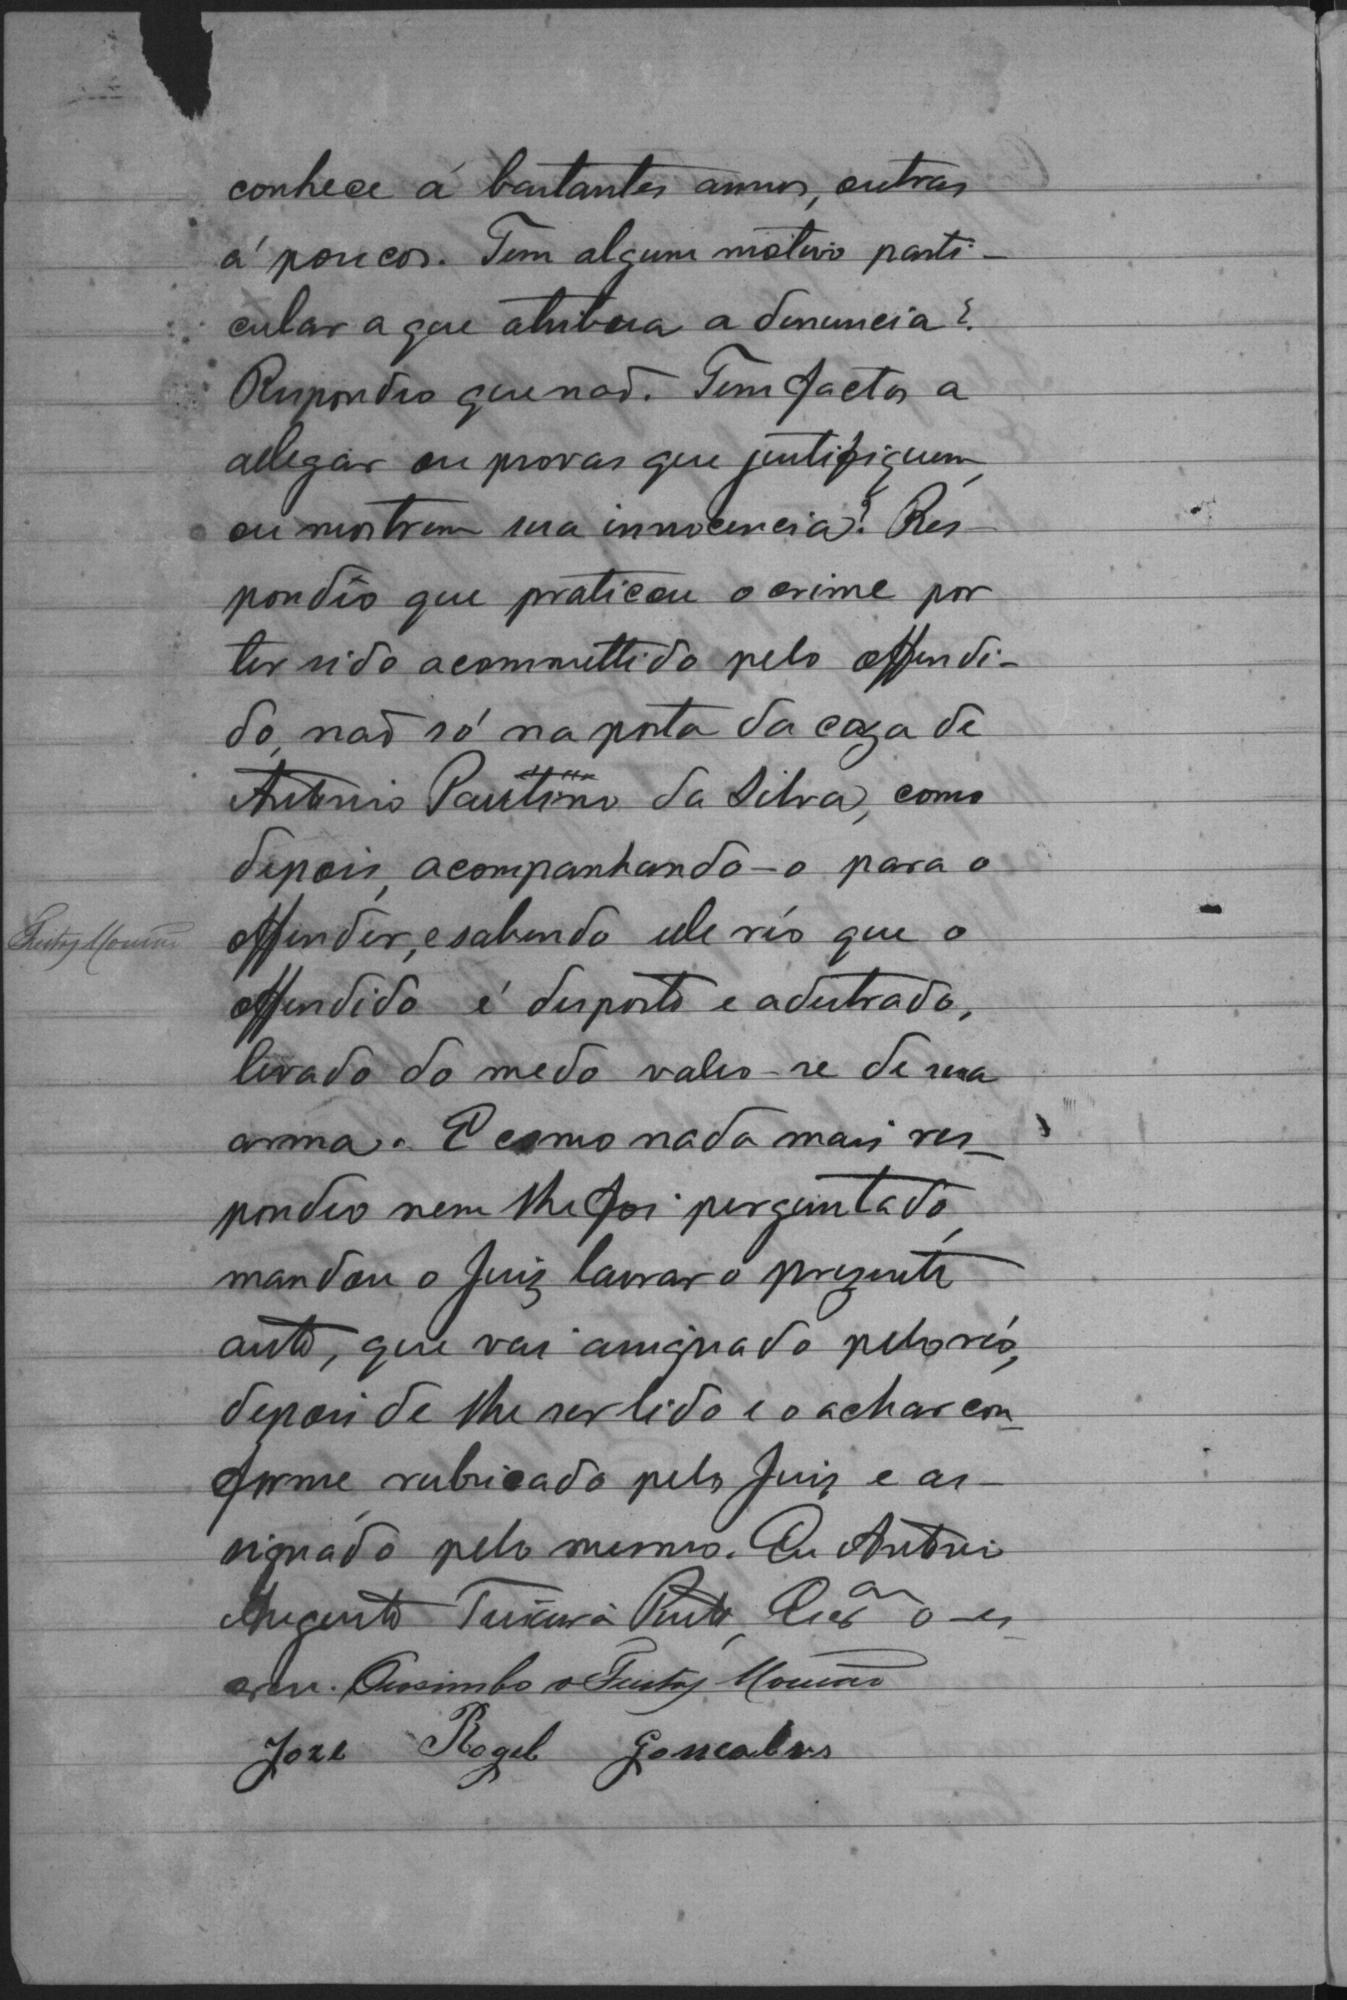 conhece á bastantes annos, outras
á poucos. Tem algum motivo parti-
cular a que atribua a denuncia?
Respondeo que naõ. Tem factos a
allegar ou provas que justifiquem
ou mostrem sua innocencia? Res-
pondeo que praticou o crime por
ter sido acommettido pelo offendi-
do, naõ só na porta da caza de
Antonio Paulino da Silva, como
depois, acompanhando-o para o
offender, e sabendo elle réo que o
Freitas
offendido é disposto e adestrado,
levado do medo valeo-se de sua
arma. E como nada mais res-
pondeo nem lhe foi perguntado,
mandou o Juiz lavrar o prezente
auto, que vai assignado pelo réo,
depois de lhe ser lido e o achar con-
forme rubricado pelo Juiz e as-
signado pelo mesmo. Eu Antonio
Augusto Teixeira Pinto, Escram o es-
crevi. Freitas
Joze Rogel Goncalves